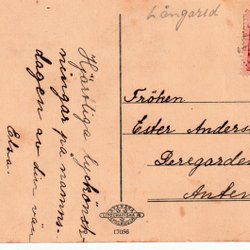 Långared
Hjärtliga lyckönsk-
ningar på namns-
dagen av din vän
Elsa.
Fröken
Ester Anders
Peregården
Anten
17056